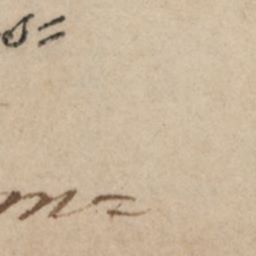 s=
m=